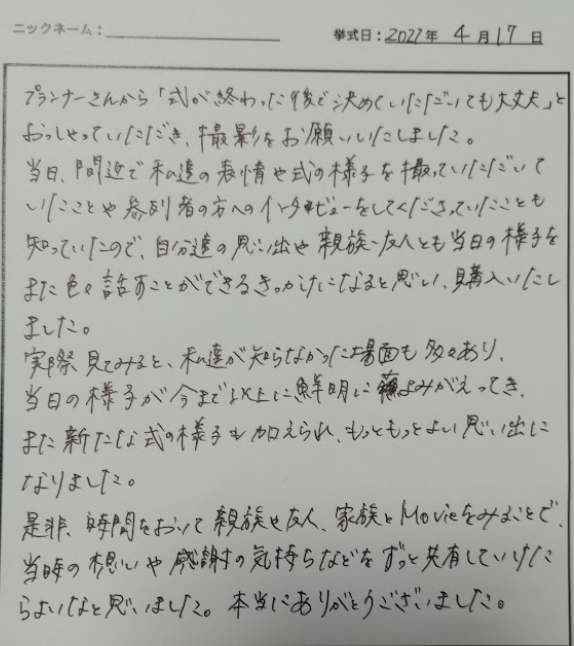 ニックネーム: 挙式日: 2022年 4月17日
プランナーさんから「式が終わった後で決めていただいても大丈夫」と
おっしゃっていただき、撮影をお願いいたしました。
当日、間近で私達の表情や式の様子を撮っていただいて
いたことや参列者の方へのインタビューをしてくださっていたことも
知っていたので、自分達の思い出や親族・友人とも当日の様子を
また色々話すことができるきっかけになると思い、購入いたし
ました。
実際見てみると、私達が知らなかった場面も多々あり、
当日の様子が今まで以上に鮮明によみがえってき、
また新たな式の様子も加えられ、もっともっとよい思い出に
なりました。
是非、時間をおいて親族や友人、家族とMovieをみることで、
当時の想いや感謝の気持ちなどをずっと共有していけた
らよいなと思いました。本当にありがとうございました。